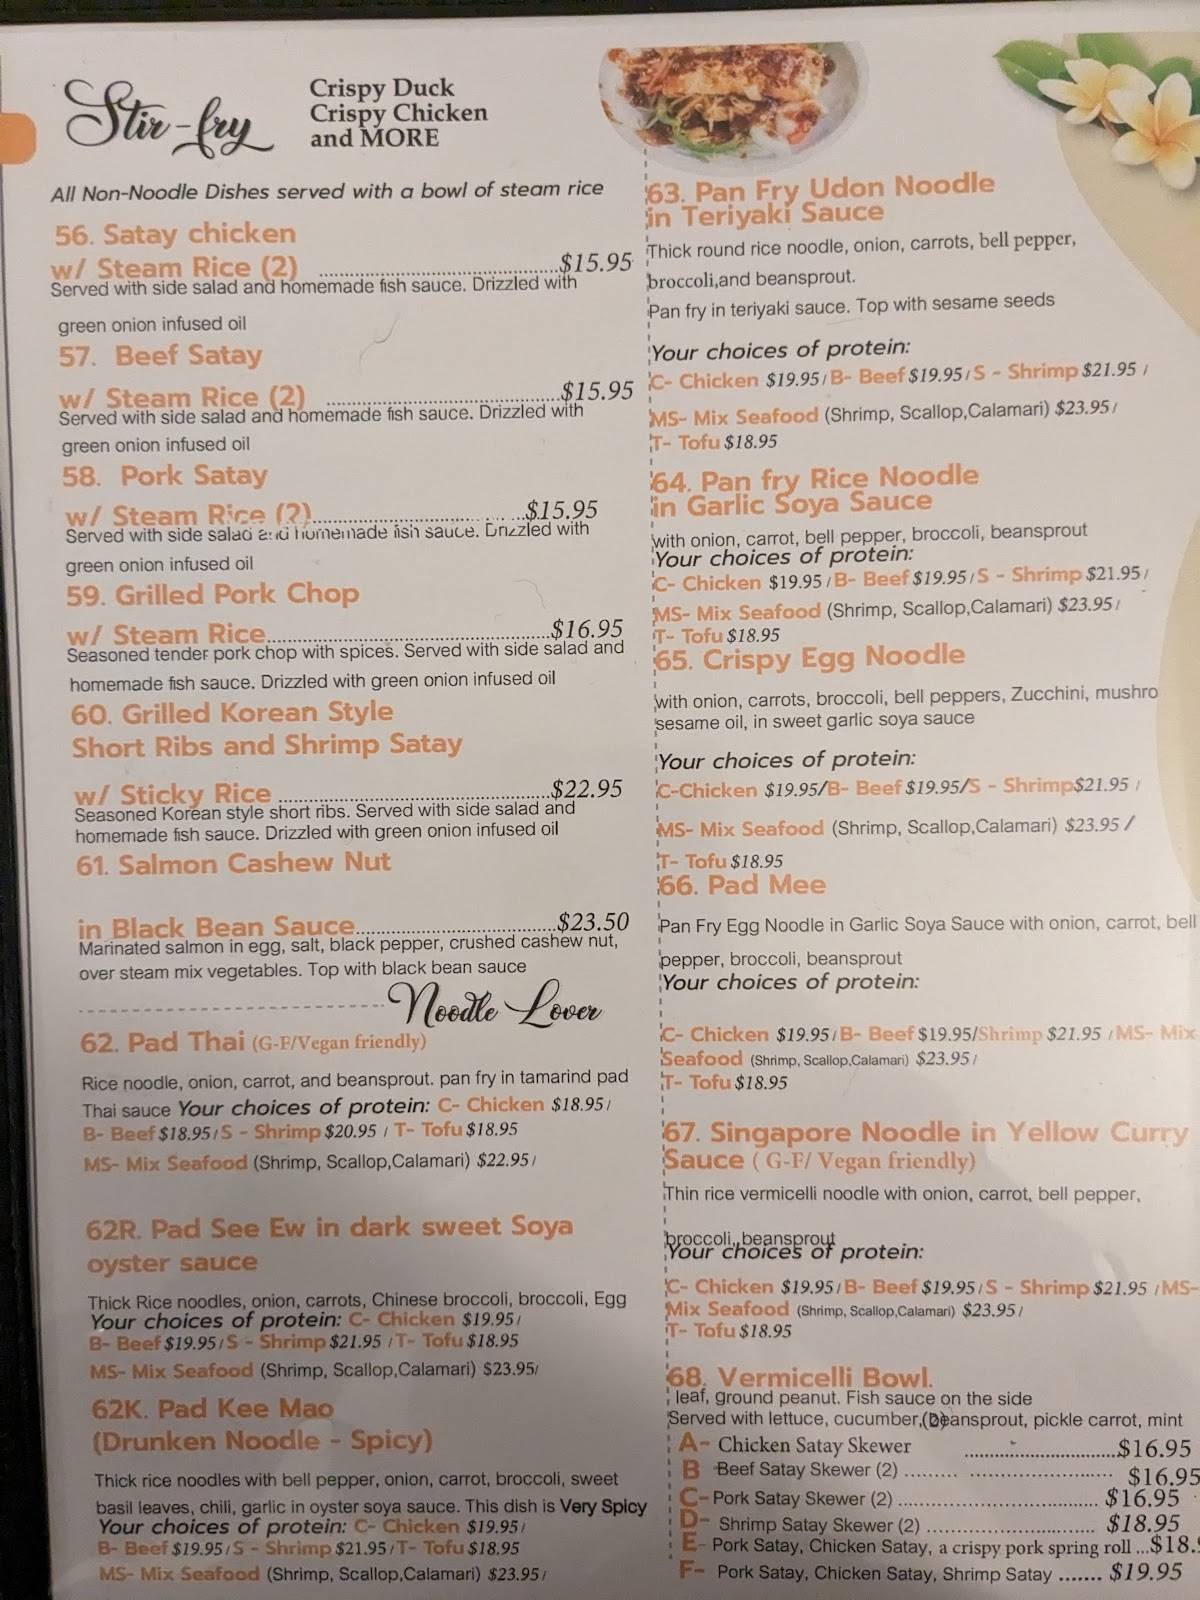 Stir-fry
Crispy Duck
Crispy Chicken
and MORE
All Non-Noodle Dishes served with a bowl of steam rice
56. Satay chicken
w/ Steam Rice (2) ...............$15.95
Served with side salad and homemade fish sauce. Drizzled with
green onion infused oil
57. Beef Satay
w/ Steam Rice (2) ...............$15.95
Served with side salad and homemade fish sauce. Drizzled with
green onion infused oil
58. Pork Satay
w/ Steam Rice (2)...............$15.95
Served with side salad and homemade fish sauce. Drizzled with
green onion infused oil
59. Grilled Pork Chop
w/ Steam Rice...............$16.95
Seasoned tender pork chop with spices. Served with side salad and
homemade fish sauce. Drizzled with green onion infused oil
60. Grilled Korean Style
Short Ribs and Shrimp Satay
w/ Sticky Rice ...............$22.95
Seasoned Korean style short ribs. Served with side salad and
homemade fish sauce. Drizzled with green onion infused oil
61. Salmon Cashew Nut
in Black Bean Sauce...............$23.50
Marinated salmon in egg, salt, black pepper, crushed cashew nut,
over steam mix vegetables. Top with black bean sauce
Noodle Lover
62. Pad Thai (G-F/Vegan friendly)
Rice noodle, onion, carrot, and beansprout. pan fry in tamarind pad
Thai sauce Your choices of protein: C- Chicken $18.95/
B- Beef $18.95/S - Shrimp $20.95 / T- Tofu $18.95
MS- Mix Seafood (Shrimp, Scallop,Calamari) $22.95/
62R. Pad See Ew in dark sweet Soya
oyster sauce
Thick Rice noodles, onion, carrots, Chinese broccoli, broccoli, Egg
Your choices of protein: C- Chicken $19.95/
B- Beef $19.95/S - Shrimp $21.95 /T- Tofu $18.95
MS- Mix Seafood (Shrimp, Scallop,Calamari) $23.95/
62K. Pad Kee Mao
(Drunken Noodle - Spicy)
Thick rice noodles with bell pepper, onion, carrot, broccoli, sweet
basil leaves, chili, garlic in oyster soya sauce. This dish is Very Spicy
Your choices of protein: C- Chicken $19.95/
B- Beef $19.95/S - Shrimp $21.95/T- Tofu $18.95
MS- Mix Seafood (Shrimp, Scallop,Calamari) $23.95/
63. Pan Fry Udon Noodle
in Teriyaki Sauce
Thick round rice noodle, onion, carrots, bell pepper,
broccoli,and beansprout.
Pan fry in teriyaki sauce. Top with sesame seeds
Your choices of protein:
C- Chicken $19.95/B- Beef $19.95/S - Shrimp $21.95 /
MS- Mix Seafood (Shrimp, Scallop,Calamari) $23.95/
T- Tofu $18.95
64. Pan fry Rice Noodle
in Garlic Soya Sauce
with onion, carrot, bell pepper, broccoli, beansprout
Your choices of protein:
C- Chicken $19.95/B- Beef $19.95/S - Shrimp $21.95/
MS- Mix Seafood (Shrimp, Scallop,Calamari) $23.95/
T- Tofu $18.95
65. Crispy Egg Noodle
with onion, carrots, broccoli, bell peppers, Zucchini, mushro
sesame oil, in sweet garlic soya sauce
Your choices of protein:
C-Chicken $19.95/B- Beef $19.95/S - Shrimp$21.95 /
MS- Mix Seafood (Shrimp, Scallop,Calamari) $23.95 /
T- Tofu $18.95
66. Pad Mee
Pan Fry Egg Noodle in Garlic Soya Sauce with onion, carrot, bell
pepper, broccoli, beansprout
Your choices of protein:
C- Chicken $19.95/B- Beef $19.95/Shrimp $21.95 /MS- Mix
Seafood (Shrimp, Scallop,Calamari) $23.95/
T- Tofu $18.95
67. Singapore Noodle in Yellow Curry
Sauce ( G-F/ Vegan friendly)
Thin rice vermicelli noodle with onion, carrot, bell pepper,
broccoli, beansprout
Your choices of protein:
C- Chicken $19.95/B- Beef $19.95/S - Shrimp $21.95 /MS-
Mix Seafood (Shrimp, Scallop,Calamari) $23.95/
T- Tofu $18.95
68. Vermicelli Bowl.
leaf, ground peanut. Fish sauce on the side
Served with lettuce, cucumber, beansprout, pickle carrot, mint
A- Chicken Satay Skewer (2) ...............$16.95
B Beef Satay Skewer (2) ...............$16.95
C- Pork Satay Skewer (2) ...............$16.95
D- Shrimp Satay Skewer (2) ...............$18.95
E- Pork Satay, Chicken Satay, a crispy pork spring roll ...$18.
F- Pork Satay, Chicken Satay, Shrimp Satay ....... $19.95